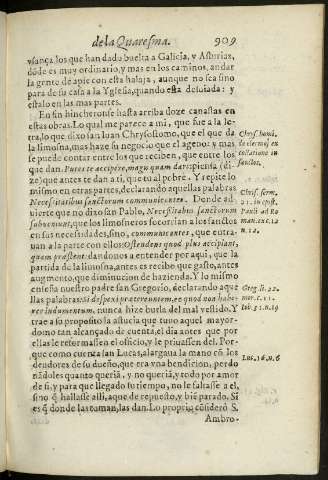 de la Quaresma. 909
vsança los que han dado buelta a Galicia, y Asturias,
dóde es muy ordinario, y mas en los caminos, andar
la gente de a pie con esta halaja, aunque no sea sino
para de su casa a la Yglesia, quando esta desuiada: y
estalo en las mas partes.
En fin hincheronse hasta arriba doze canastas en
estas obras. Lo qual me parece a mi, que fue a la le-
tra, lo que dixo san Iuan Chrysostomo, que el que da
la limosna, mas haze su negocio que el ageno: y mas
se puede contar entre los que reciben, que entre los
que dan. Putate accipere, magis quam dare
que antes te dan a ti, que tu al pobre. Y repite lo
mismo en otras partes, declarando aquellas palabras
Necessitatibus sanctorum communicantes. Donde ad-
uierte que no dixo san Pablo, Necessitatibus sanctorum
subuenientes, que los limosneros socorrian a los sanctos
en sus necessidades, sino, communicantes, que entra-
uan a la parte con ellos: Ostendens quod plus accipiant,
quam præstent. dandonos a entender por aqui, que la
partida de la limosna, antes es recibo que gasto, antes
augmento, que diminucion de hazienda. Y lo mismo
enseña nuestro padre san Gregorio, declarando aque
llas palabras: Si despexi prætereuntem, eo quod non habe-
ret indumentum. nunca hize burla del mal vestido. Y
trae a su proposito la astucia que tuuo aquel mayor-
domo tan alcançado de cuenta, el dia antes que por
ellas le reformassen el officio, y le priuassen del. Por-
que como cuenta san Lucas, alargaua la mano cō los
deudores de su dueño, que era vna bendicion, perdo
nādoles quanto queria, y no queria, y todo por amor
de si, y para que llegado su tiempo, no le faltasse a el,
sino q̄ hallasse alli, aque de repuesto, y biē parado. Si
es q̄ donde las toman, las dan. Lo proprio cōsideró S.
Ambro-
Chrys. homi.
sanctos.
Chrys. serm.
21. in epist.
Pauli ad Ro
man. ex c. 12
n. 12.
Greg. li. 22.
mor. c. 11.
Iob. 31. n. 19
Luc. 16. n. 6